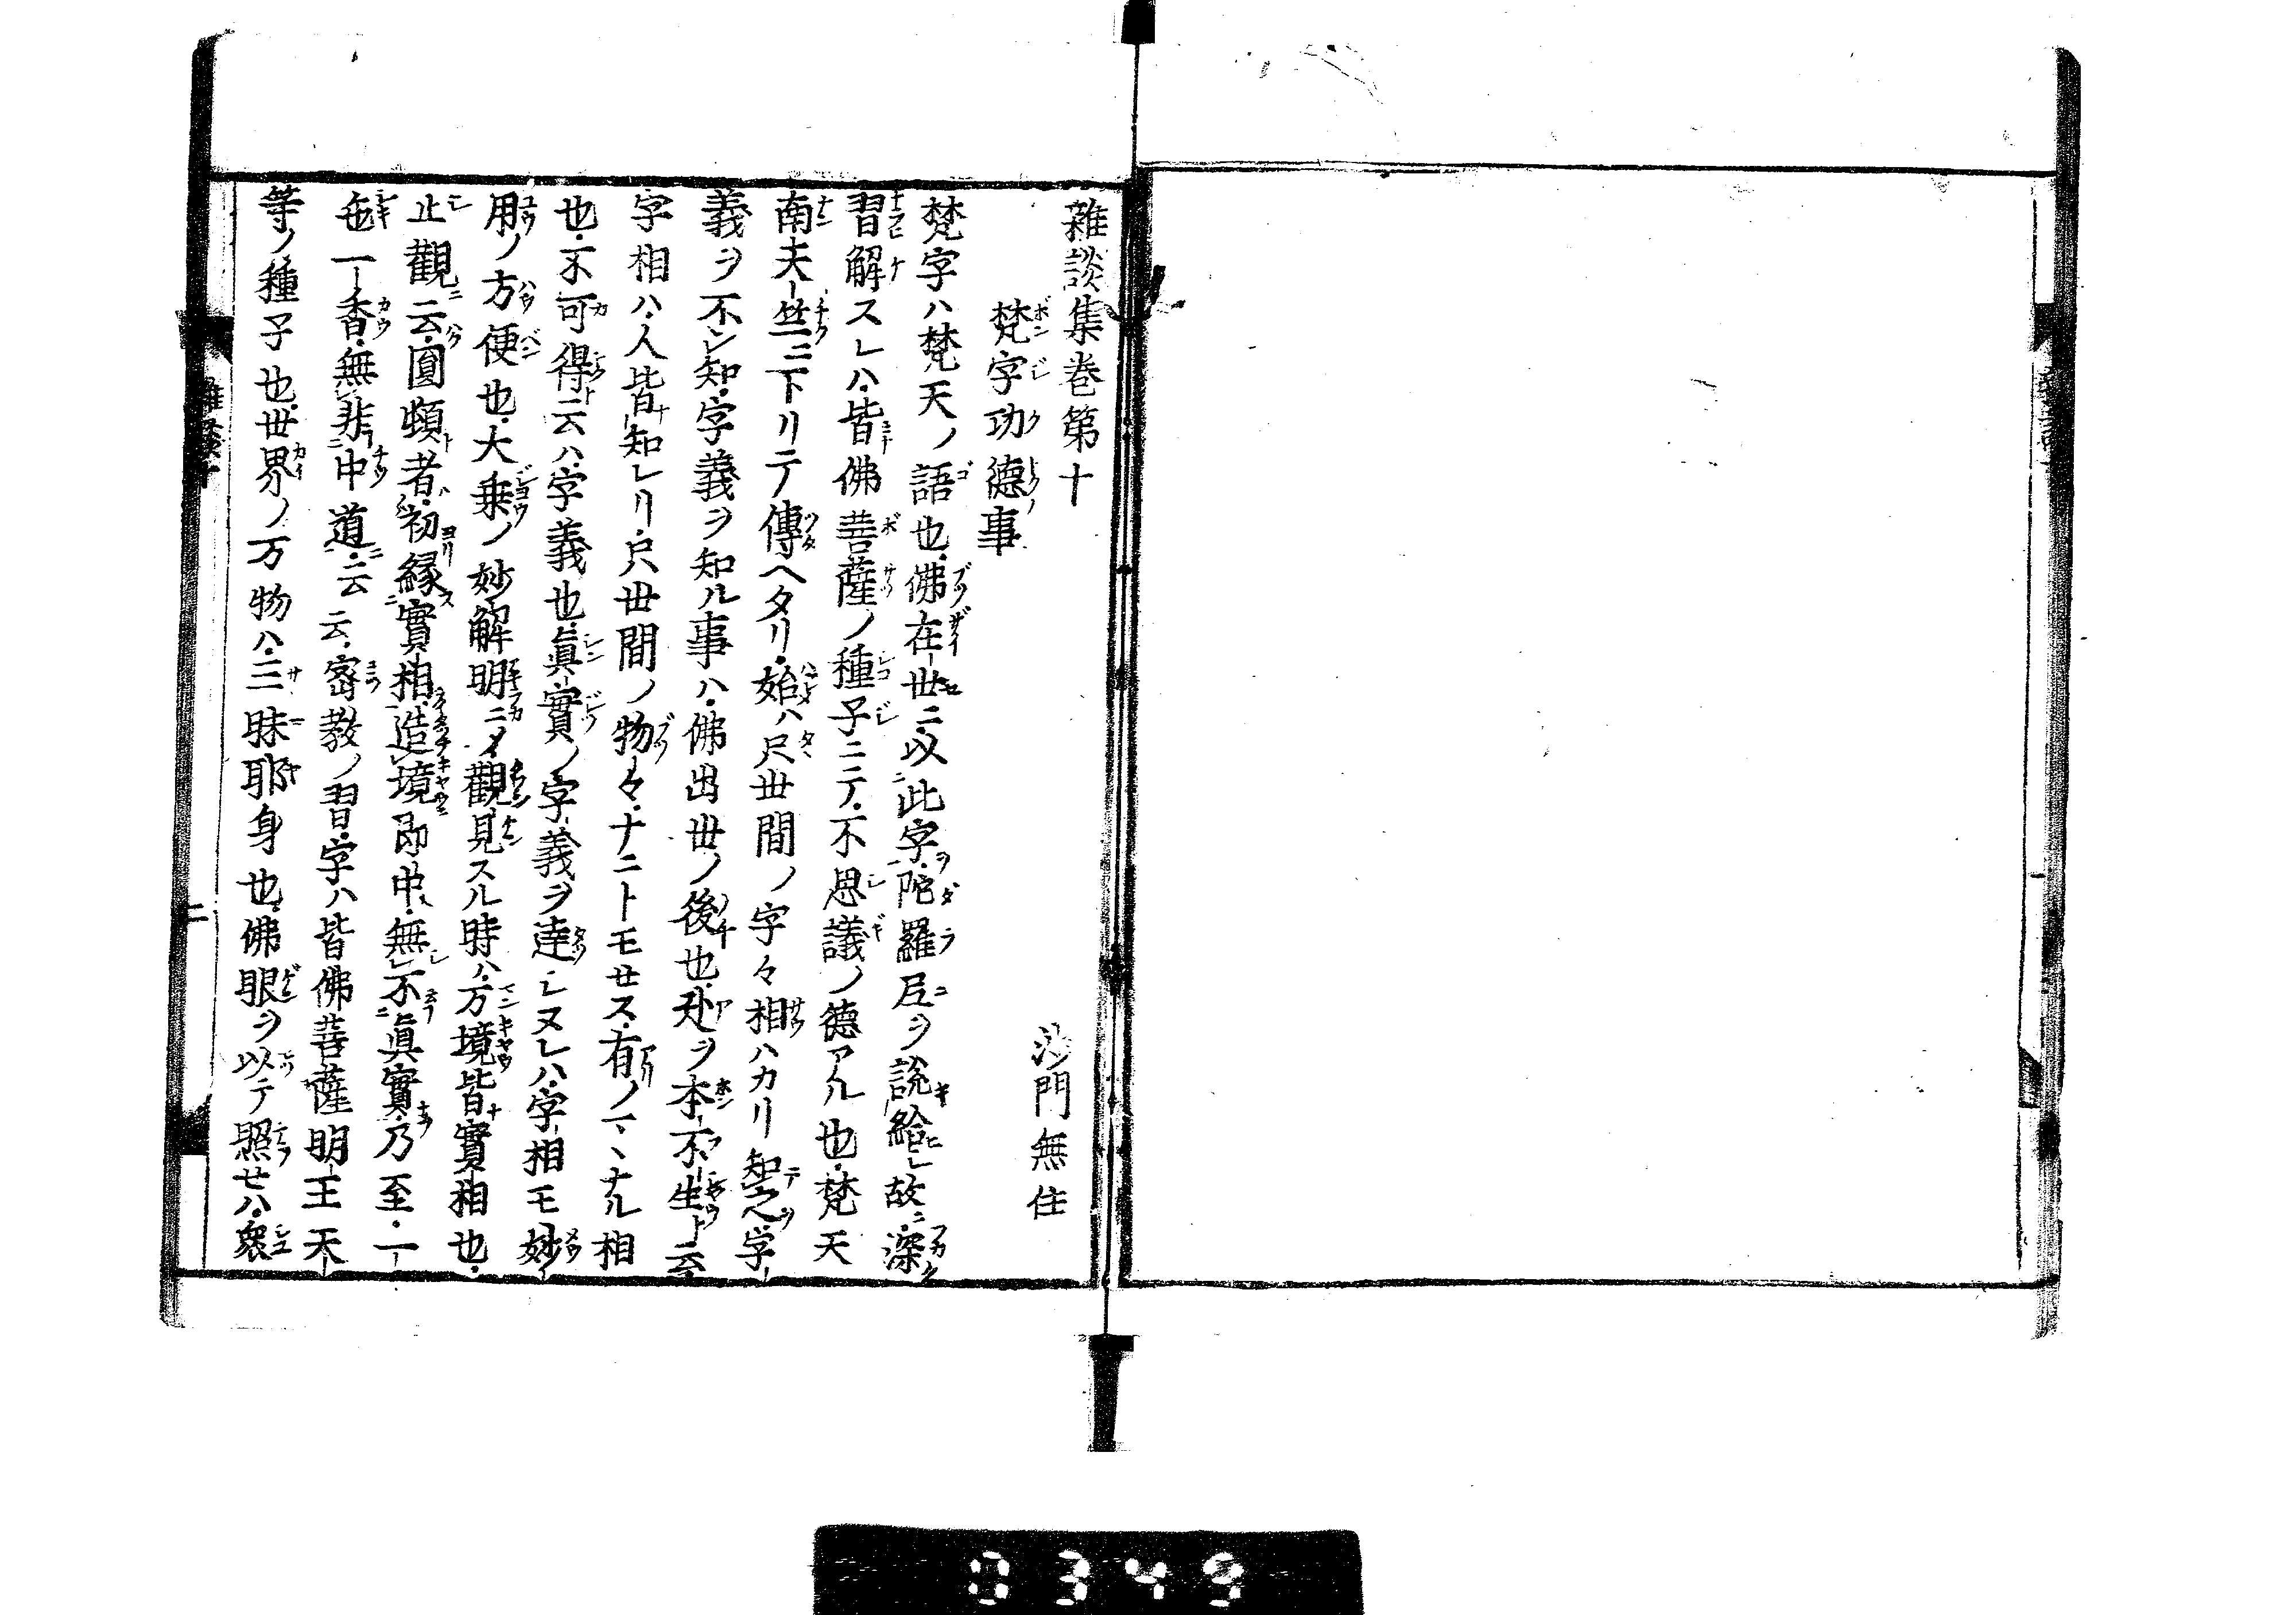 雜談集巻第十
沙門無住
梵字功德事
梵字ハ梵天ノ語也佛在世ニ以此字ヲ陀羅尼ヲ說給ヒシ故ニ深ク
習解スレハ皆佛菩薩ノ種子ニテ不思議ノ德アル也梵天
南天竺ニ下リテ傳ヘタリ始ハ只世間ノ字々相ハカリ知テ之ヲ字
義ヲ不知字義ヲ知ル事ハ佛出世ノ後也ヲ本不生ト云
字相ハ人皆知レリ只世間ノ物々ナニトモセス有ノマヽナル相
也不可得ト云ハ字義也眞實ノ字義ヲ達シヌレハ字相モ妙
用ノ方便也大乘ノ妙解明ニメ觀見スル時ハ万境皆實相也
止觀ニ云圓頓者初緣實相造境即中無不眞實乃至一
色一香無非中道云云密教ノ習字ハ皆佛菩薩明王天
等ノ種子也世界ノ万物ハ三昧耶身也佛眼ヲ以テ照セハ衆
雜談十
二
0349